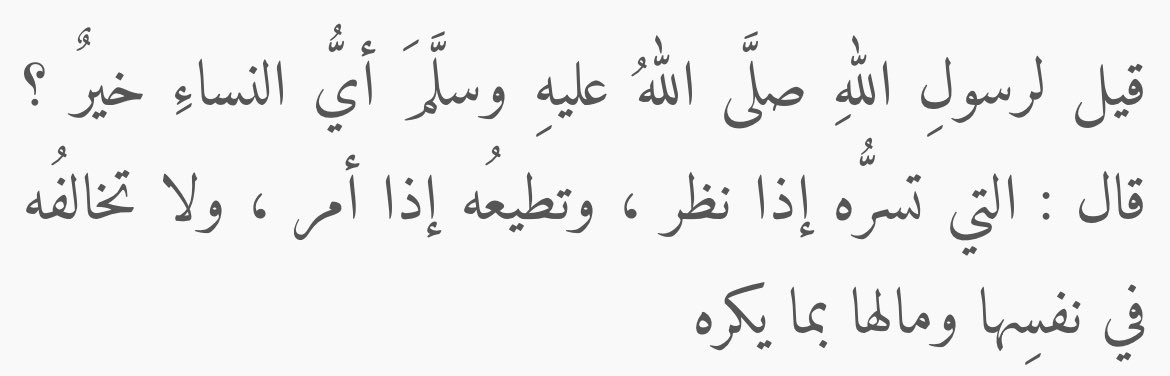 قيل لرسولِ اللهِ صلَّى اللهُ عليهِ وسلَّمَ أيُّ النساءِ خيرٌ ؟
قال : التي تسرُّه إذا نظر ، وتطيعُه إذا أمر ، ولا تخالفُه
في نفسِها ومالها بما يكره